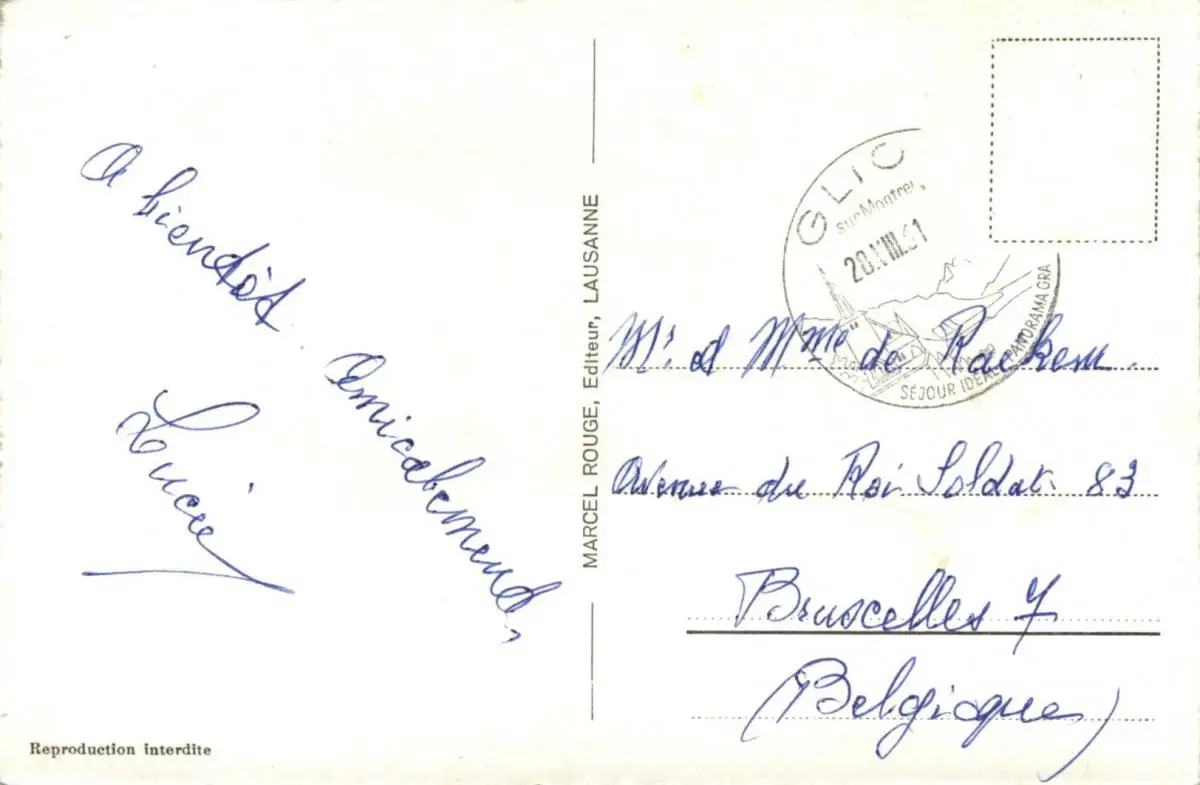 A bientôt.
Amicalement,
Lucie
Reproduction interdite
MARCEL ROUGE, Editeur, LAUSANNE
GLIO
sur Montreu
28.VIII.61
SÉJOUR IDÉAL PANORAMA GRA
Mr. et Mme de Raekem
Avenue du Roi Soldat 83
Bruxelles 7
(Belgique)